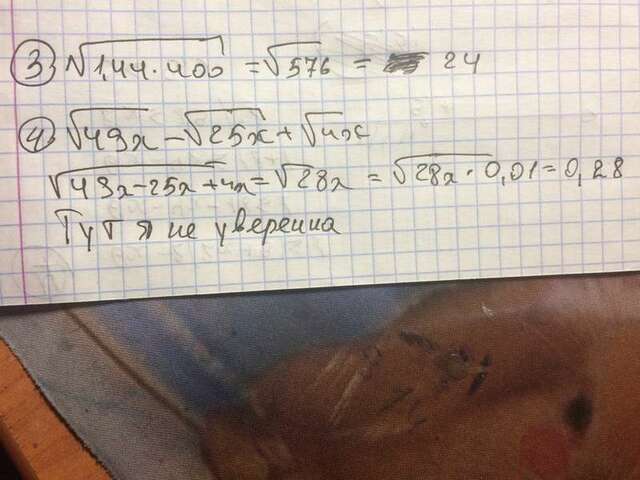 3) √1,44·400 = √576 = 24
4) √49x - √25x + √4x
√49x-25x+4x = √28x = √28x · 0,01 = 0,28
Тут я не уверенна